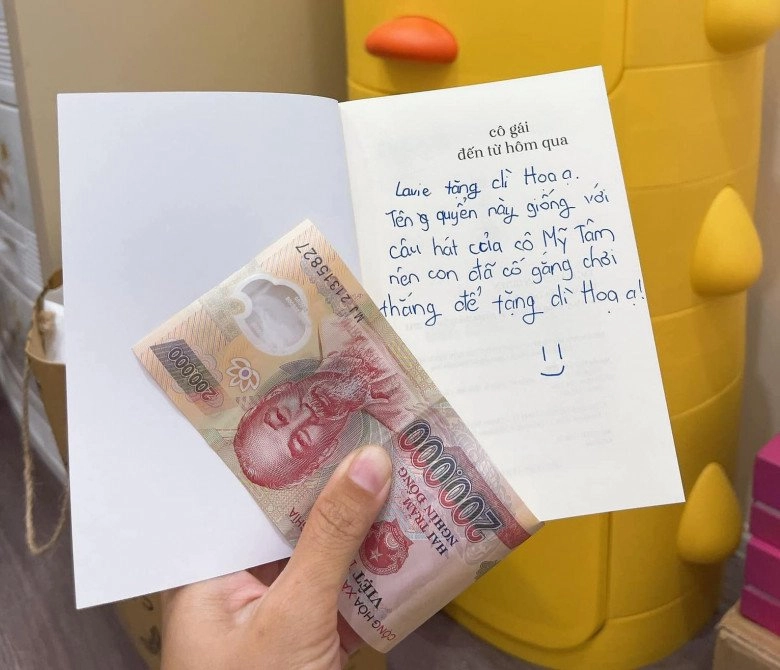 cô gái
đến từ hôm qua
Lavie tặng dì Hoa ạ.
Tên quyển này giống với
câu hát của cô Mỹ Tâm
nên con đã cố gắng chơi
thắng để tặng dì Hoa ạ!
MJ 21315827
200000
200000
HAI TRĂM
NGHÌN ĐỒNG
CỘNG HÒA XÃ
NGHĨA
VIỆT